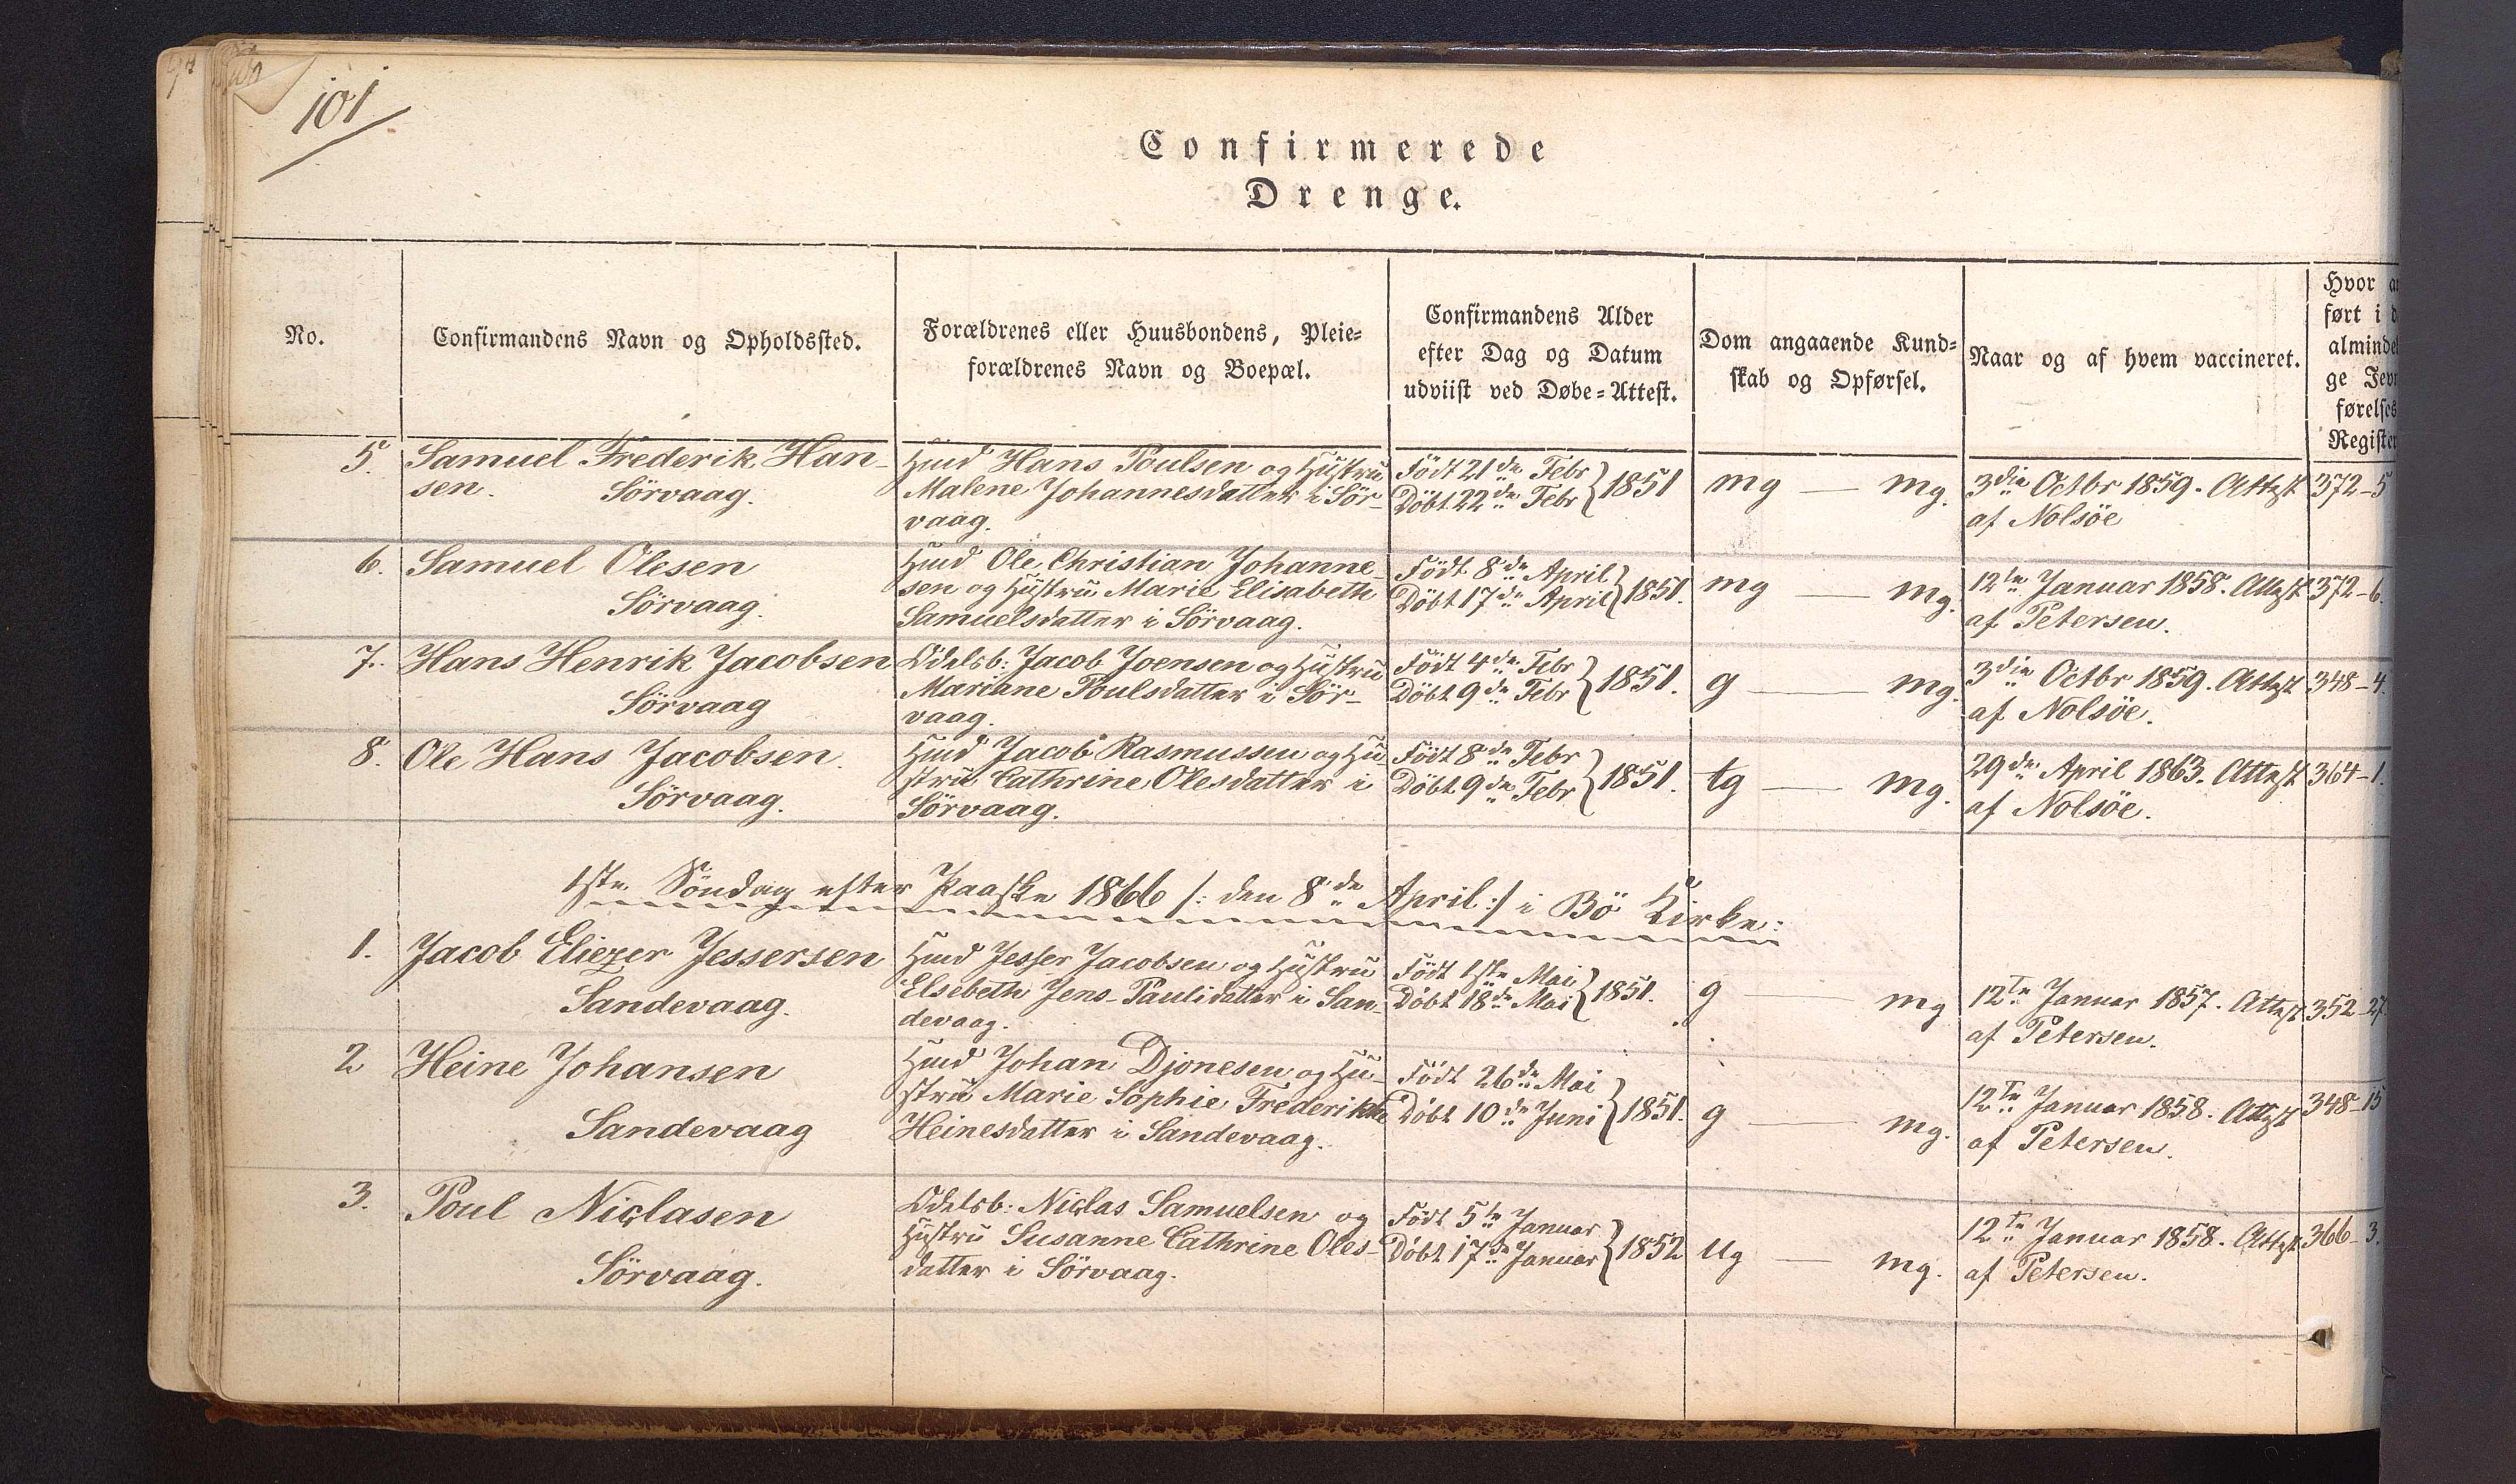 101
Confirmerede
Drenge.
No.
Confirmandens Navn og Opholdssted.
Forældrenes eller Huusbondens, Pleie=
forældrenes Navn og Boepæl.
Confirmandens Alder
efter Dag og Datum
udviist ved Døbe=Attest.
Dom angaaende Kund=
skab og Opførsel.
Naar og af hvem vaccineret.
Hvor
ført i
almindel
ge Jevn
førelses
Register
5.
Samuel Frederik Han-
sen.
Sörvaag.
Hmd Hans Poulsen og Hustru
Malene Johannesdatter i Sör-
vaag.
Födt 21de Febr
Döbt 22de Febr } 1851
mg — mg.
3die Octbr 1859. Attest
af Nolsöe
372-5
6.
Samuel Olesen
Sörvaag.
Hmd Ole Christian Johanne-
sen og Hustru Marie Elisabeth
Samuelsdatter i Sörvaag.
Födt 8de April
Döbt 17de April } 1851.
mg — mg.
12te Januar 1858. Attest
af Petersen.
372-6.
7.
Hans Henrik Jacobsen
Sörvaag
Odelsb: Jacob Joensen og Hustru
Mariane Poulsdatter i Sör-
vaag.
Födt 4de Febr
Döbt 9de Febr } 1851.
g — mg.
3die Octbr 1859. Attest
af Nolsöe.
348-4.
8.
Ole Hans Jacobsen.
Sörvaag.
Hmd Jacob Rasmussen og Hu
stru Cathrine Olesdatter i
Sörvaag.
Födt 8de Febr
Döbt 9de Febr } 1851.
tg — mg.
29de April 1863. Attest
af Nolsöe.
364-1.
1ste Söndag efter Paaske 1866 /: den 8de April :/ i Bö Kirke:
1.
Jacob Eliezer Jessersen
Sandevaag.
Hmd Jesser Jacobsen og Hustru
Elsebeth Jens-Paulidatter i San-
devaag.
Födt 1ste Mai
Döbt 18de Mai } 1851.
g — mg
12te Januar 1857. Attest
af Petersen.
352-27
2
Heine Johansen
Sandevaag
Hmd Johan Djonesen og Hu-
stru Marie Sophie Frederikke
Heinesdatter i Sandevaag.
Födt 26de Mai
Döbt 10de Juni } 1851.
g — mg.
12te Januar 1858. Attest
af Petersen.
348-15
3.
Poul Niclasen
Sörvaag.
Odelsb: Niclas Samuelsen og
Hustru Susanne Cathrine Oles-
datter i Sörvaag.
Födt 5te Januar
Döbt 17de Januar } 1852
ug — mg.
12te Januar 1858. Attest
af Petersen.
366-3.